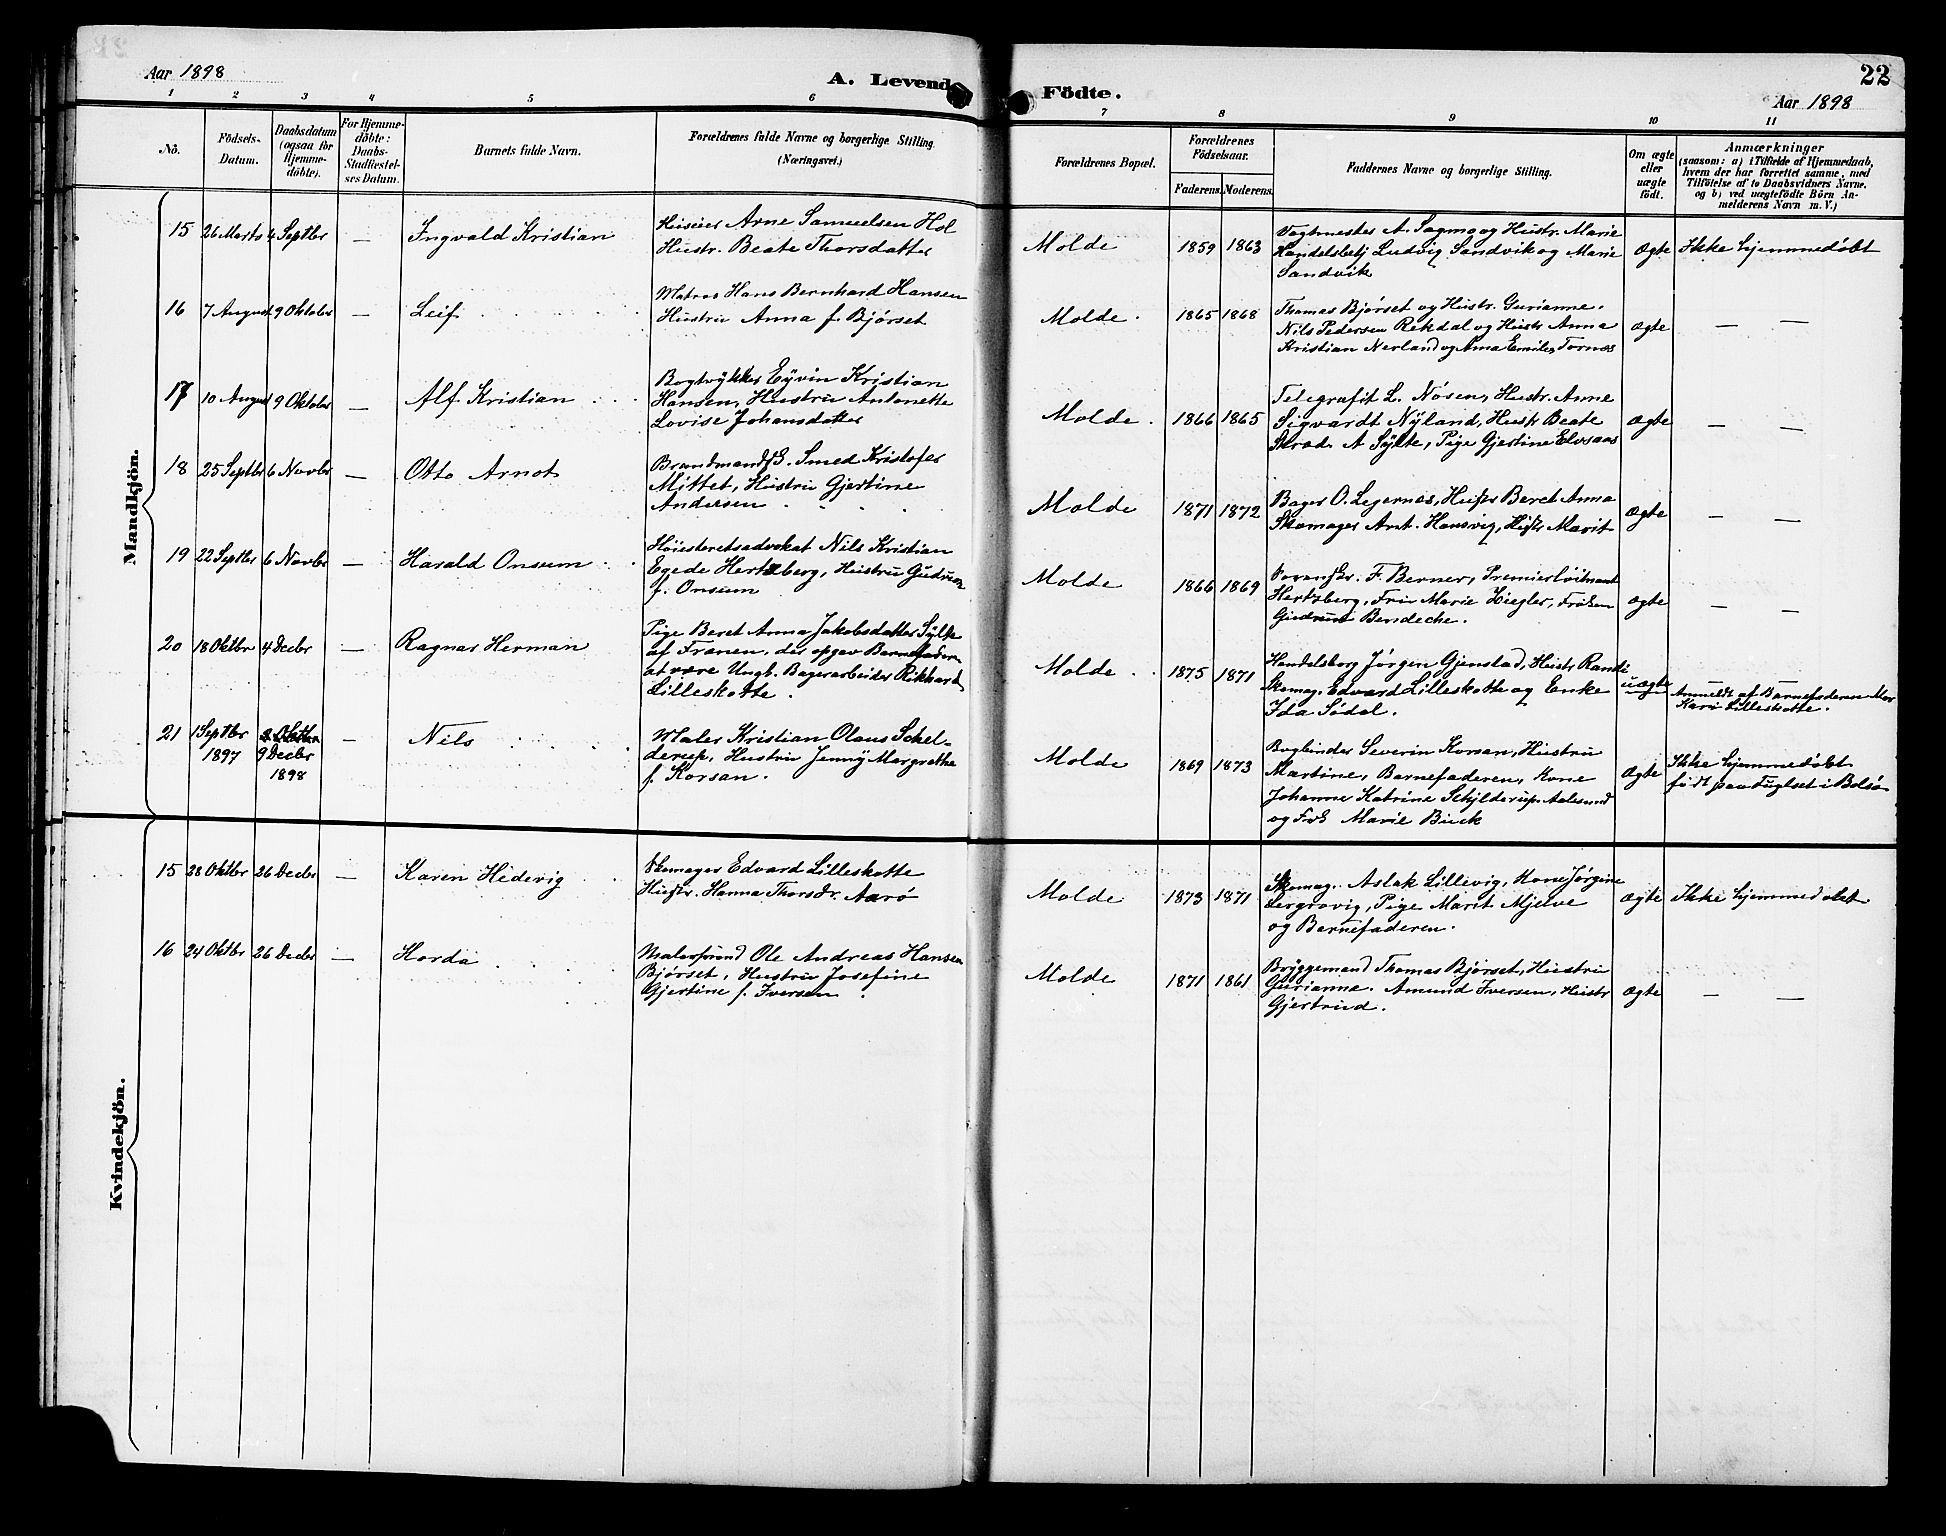 Aar 1898
A. Levende
1 2 3 4 5 6
Nô.
Födsels-Datum.
Daabsdatum (ogsaa for Hjemmedöbte).
For Hjemmedöbte: Daabs-Stadfæstelses Datum.
Barnets fulde Navn.
Forældrenes fulde Navne og borgerlige Stilling.
(Næringsvei.)
Mandkjön.
15 26 Marts 4 Septbr — Ingvald Kristian
Huseier Arne Samuelsen Hol
Hustr. Beate Thorsdatter
16 7 August 9 Oktober — Leif
Matros Hans Bernhard Hansen
Hustru Anna f. Bjørset
17 10 August 9 Oktober — Alf Kristian
Bogtrykker Eyvin Kristian
Hansen, Hustru Antonette
Lovise Johansdatter
18 25 Septbr 6 Novbr — Otto Arnot
Smed Kristofer
Mittet, Hustru Gjertine
Andersen
19 22 Septbr 6 Novbr — Harald Onsum
Høiesteretsadvokat Nils Kristian
Egede Hertzberg, Hustru Gudrun
f. Onsum
20 18 Oktbr 4 Decbr — Ragnar Herman
Pige Beret Anna Jakobsdatter Sylte
af Frænen, der opgav Barnefaderen
at være Ungk. Bagerarbeider Rikhard
Lilleskotte.
21 1 Septbr 1897 9 Decbr 1898 — Nils
Maler Kristian Olaus Schel-
derup, Hustru Jenny Margrethe
f. Korsan.
Kvindekjön.
15 28 Oktbr 26 Decbr — Karen Hedevig
Skomager Edvard Lilleskotte
Hustr. Hanna Thorsdr. Aarø
16 24 Oktbr 26 Decbr — Horda
Malersvend Ole Andreas Hansen
Bjørset, Hustru Josefine
Gjertine f. Iversen
Födte.
22
Aar 1898
7 8 9 10 11
Forældrenes Bopæl.
Forældrenes Födselsaar.
Faderens. Moderens.
Faddernes Navne og borgerlige Stilling.
Om ægte eller uægte födt.
Anmærkninger
(saasom: a) i Tilfælde af Hjemmedaab,
hvem der har forrettet samme, med
Tilföielse af to Daabsvidners Navne.
og b) ved uægtefödte Börn An-
melderens Navn m. V.)
Molde 1859 1863
A. Sagmo og Hustr. Marie
Handelsbetj Ludvig Sandvik og Marie
Sandvik
Ægte Ikke hjemmedøbt
Molde. 1865 1868
Thomas Bjørset og Hustr. Gurianne.
Nils Pedersen Rekdal og Hustr Anna
Kristian Nerland og Anna Emilie Tornæs
Ægte — —
Molde. 1866 1865
Telegrafit L. Nøsen, Hustr. Anne
Sigvardt Nyland, Hustr Beate
Skræd. A Sylte, Pige Gjertine Elvsaas
Ægte — —
Molde 1871 1872
Bager O. Legernæs, Hustr Beret Anna
Skomager Arnt. Hansvig, Hustr Marit
Ægte — —
Molde 1866 1869
F. Berner, Premierløitnant
Hertzberg, Fru Marie Ziegler, Frøken
Gudrun Bendeche.
Ægte — —
Molde 1875 1871
Handelsborg Jørgen Gjenstad, Hustr Randi
Skomag. Edvard Lilleskotte og Enke
Ida Sødal.
uægte —
Anmeldt af Barnefaderen Mor
Kari Lilleskotte.
Molde 1869 1873
Bogbinder Severin Korsan, Hustru
Martine, Barnefaderen, Kone
Johanne Katrine Schjlderup, Aalesund
og Frk Marie Buck
Ægte
Ikke hjemmedøbt
født paa Fuglset i Bolsø
Molde 1873 1871
Skomag. Aslak Lillevig, Kone Jørgine
Lergrovig, Pige Marit Mjelve
og Barnefaderen.
Ægte Ikke hjemmedøbt
Molde 1871 1861
Bryggemand Thomas Bjørset, Hustru
Gurianne. Amund Iversen, Hustr
Gjertrud.
Ægte — —